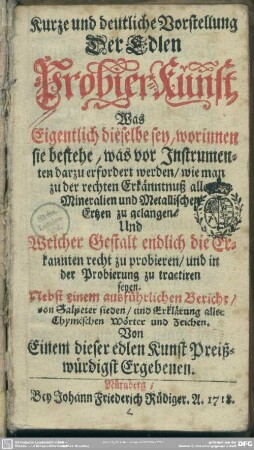 Kurze und deutliche Vorstellung
Der Edlen
Probier-Kunst,
Was
Eigentlich dieselbe sey, worinnen
sie bestehe, was vor Instrumen-
ten darzu erfordert werden, wie man
zu der rechten Erkänntnuß alle
Mineralien und Metallischen
Ertzen zu gelangen/
Und
Welcher Gestalt endlich die Er-
kannten recht zu probieren, und in
der Probierung zu tractiren
seyen.
Nebst einem ausführlichen Bericht,
von Salpeter sieden, und Erklärung aller
Chymischen Wörter und Zeichen.
Von
Einem dieser edlen Kunst Preiß-
würdigst Ergebenen.
Nürnberg,
Bey Johann Friederich Rüdiger. A. 1718.
DFG